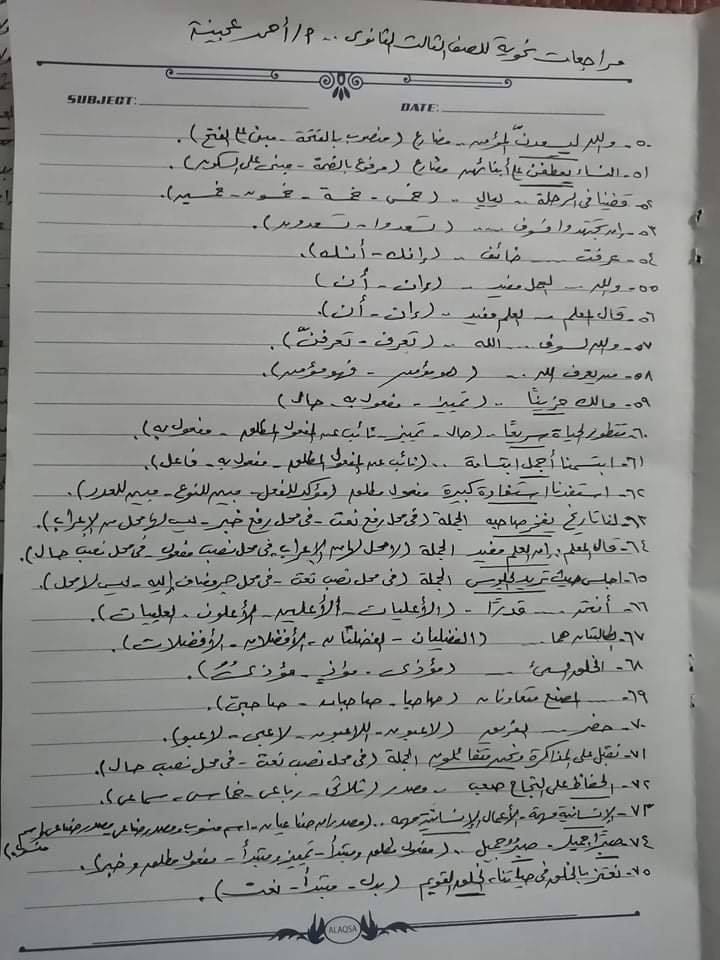 مراجعات نحوية للصف الثالث الثانوى .. أ/أحمد عجينة
SUBJECT: DATE:
٥٠- والله ليسعدنّ المؤمن - مضارع (منصوب بالفتحة - مبنى على الفتح).
٥١- النساء يعطفن على أبنائهن مضارع (مرفوع بالضمة - مبنى على السكون).
٥٢- قضينا فى الرحلة .. ليالٍ .. (خمس - خمسة - خمسون - خمسين).
٥٣- إن تجتهدوا فسوف .... (تسعدوا - تسعدون).
٥٤- عرفت .... خائف .. (إنك - أنك).
٥٥- والله .. العمل مفيد .. (إن - أن)
٥٦- قال المعلم .. العلم مفيد .. (إن - أن).
٥٧- والله لسوف .... الله .. (تعرف - تعرفنّ).
٥٨- من يعرف الله ... (هو مؤمن - فهو مؤمن).
٥٩- مالك حزينًا .. (تمييز - مفعول به - حال)
٦٠- تتطور الحياة سريعًا .. (حال - تمييز - نائب عن المفعول المطلق - مفعول به).
٦١- ابتسمنا أجمل ابتسامة .. (نائب عن المفعول المطلق - مفعول به - فاعل).
٦٢- استفدنا استفادة كبيرة مفعول مطلق (مؤكد للفعل - مبين للنوع - مبين للعدد).
٦٣- لنا تاريخ يفخر صاحبه الجملة (فى محل رفع نعت - فى محل رفع خبر - ليس لها محل من الإعراب).
٦٤- قال المعلم: إن العلم مفيد الجملة (لا محل لها من الإعراب - فى محل نصب مفعول - فى محل نصب حال).
٦٥- اجلس حيث تريد الجلوس الجملة (فى محل نصب نعت - فى محل جر مضاف إليه - ليس لا محل).
٦٦- أنتن .... قدرًا - (الأعليات - الأعلين - الأعلون - العليات).
٦٧- الطالبتان هما .... (الفضليان - الفضلتان - الأفضلان - الأفضلات).
٦٨- الخلق السيئ .... (مؤذى - مؤذٍ - مؤذىٌ).
٦٩- .... المصنع متعاونان (صاحبا - صاحبان - صاحبى).
٧٠- حضر .... الفريق (لاعبون - اللاعبون - لاعبى - لاعبو).
٧١- نقبل على المذاكرة ونحن متفائلون الجملة (فى محل نصب نعت - فى محل نصب حال).
٧٢- الحفاظ على النجاح صعب .. مصدر (ثلاثى - رباعى - خماسى - سماعى).
٧٣- الإنسانية مهمة - الأعمال الإنسانية مهمة .. (مصدران صناعيان - اسم منسوب ومصدر صناعى - مصدر صناعى واسم منسوب)
٧٤- صبرًا جميل - صبرٌ جميل .. (مفعول مطلق ومبتدأ - تمييز ومبتدأ - مفعول مطلق وخبر).
٧٥- نعتز بالخلق فى حياتنا، الخلق القويم (بدل - مبتدأ - نعت).
ALAQSA